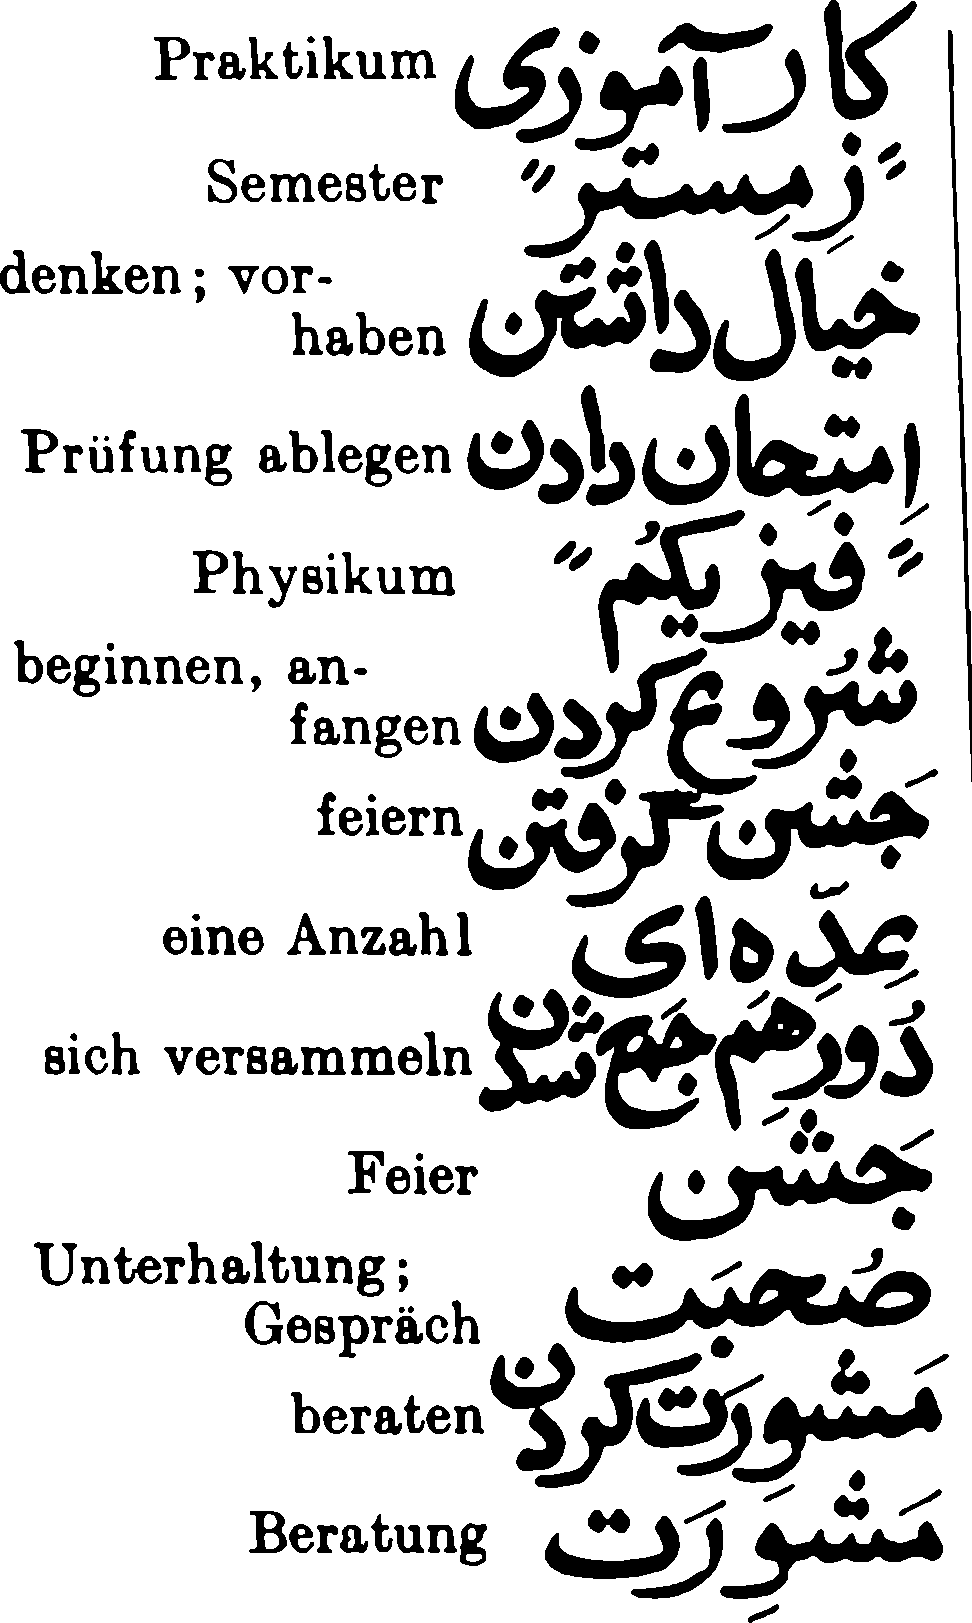 Praktikum کار آموزی
Semester "زِمِستر"
denken; vor-
haben خیال داشتن
Prüfung ablegen اِمتِحان دادن
Physikum "فیزیکُم"
beginnen, an-
fangen شُروع کردن
feiern جَشن گرفتن
eine Anzahl عِدِّه ای
sich versammeln دُورِ هَم جَمع شدن
Feier جَشن
Unterhaltung;
Gespräch صُحبَت
beraten مَشوِرَت کردن
Beratung مَشوِرَت